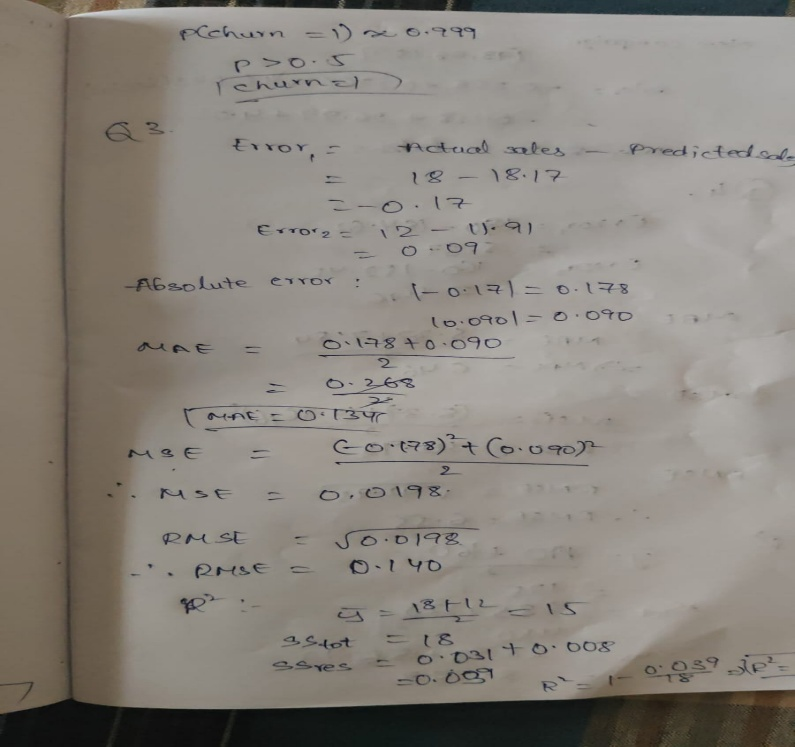 P(churn = 1) ≈ 0.999
P > 0.5
churn = 1
Q 3.
Error₁ = Actual sales - Predicted sales
= 18 - 18.17
= -0.17
Error₂ = 12 - 11.91
= 0.09
Absolute error : |-0.17| = 0.178
|0.090| = 0.090
MAE = 0.178 + 0.090 / 2
= 0.268 / 2
MAE = 0.134
MSE = (-0.178)² + (0.090)² / 2
∴ MSE = 0.0198.
RMSE = √0.0198
∴ RMSE = 0.140
R² :- ȳ = 18+12 / 2 = 15
SStot = 18
SSres = 0.031 + 0.008
= 0.039 R² = 1 - 0.039 / 18 ⇒ R² =